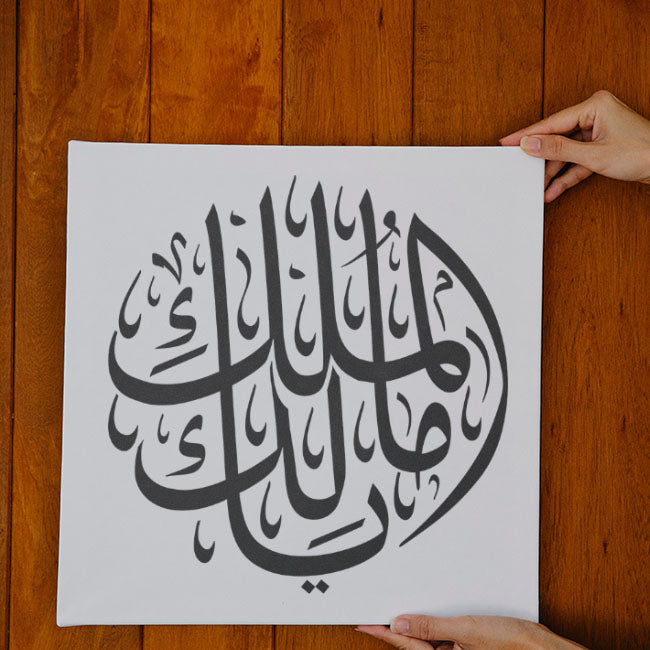 يا
مالك
الملك